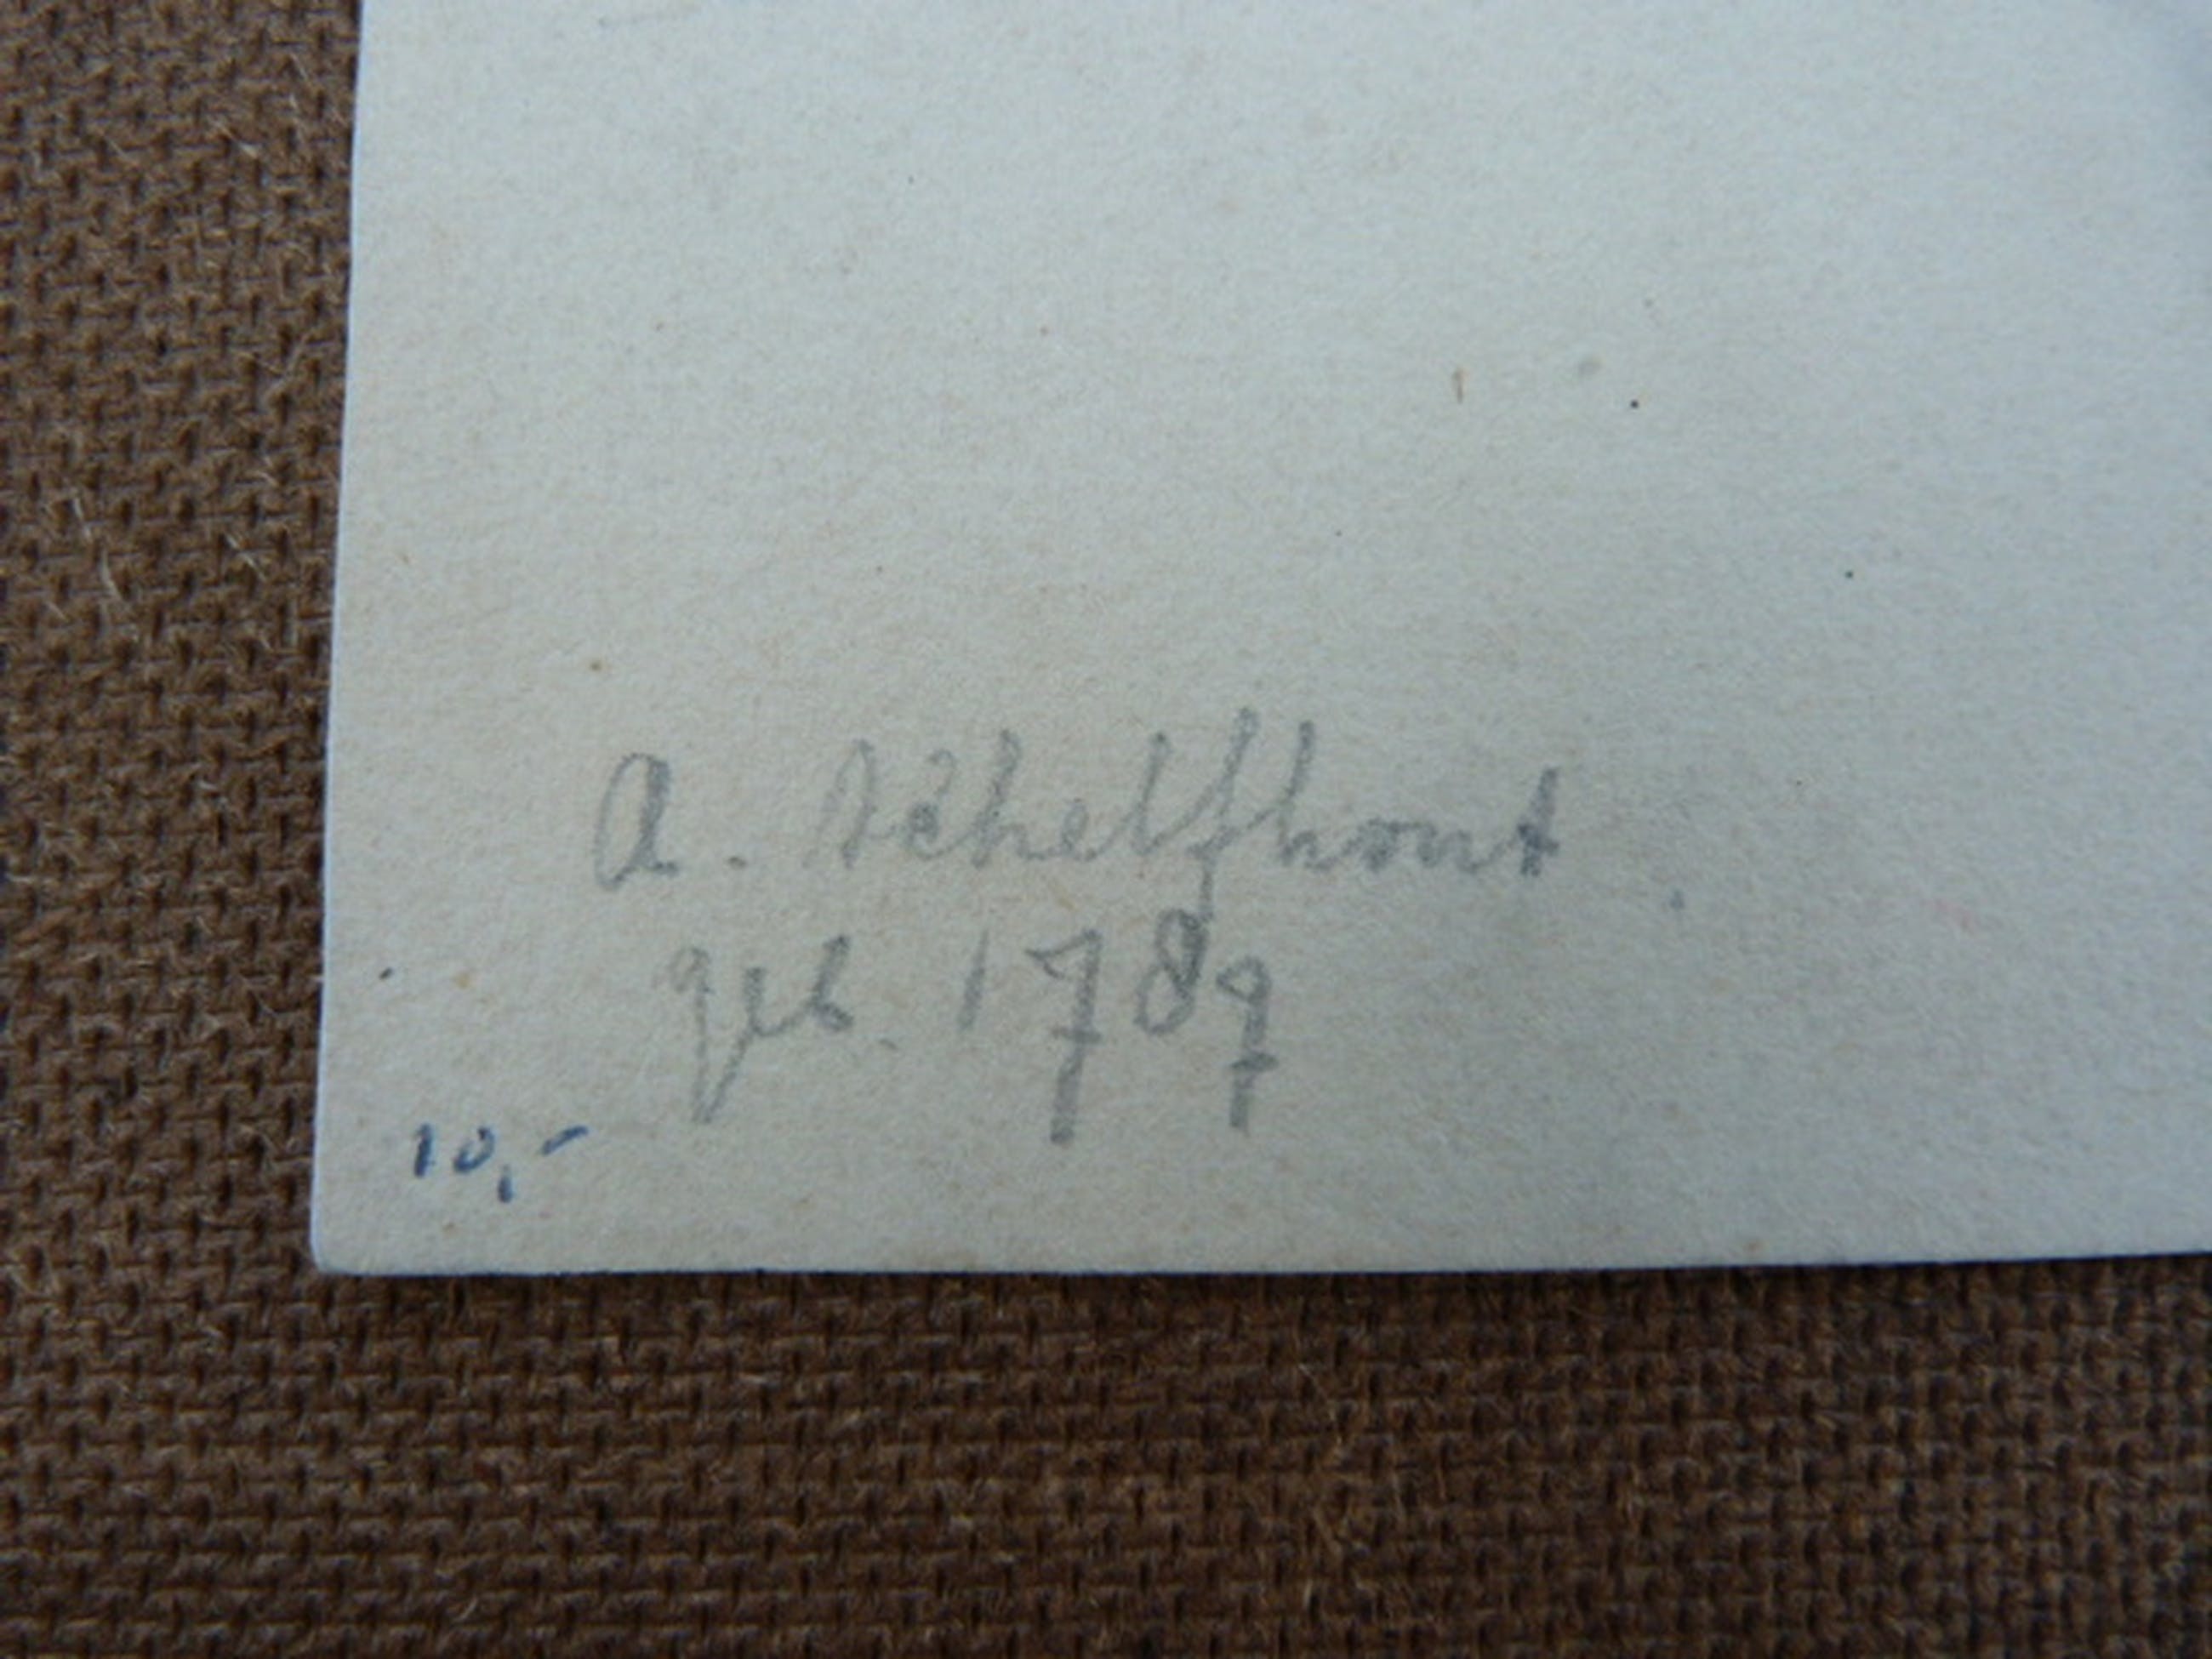 A. Schelfhout
geb. 1789
10,-